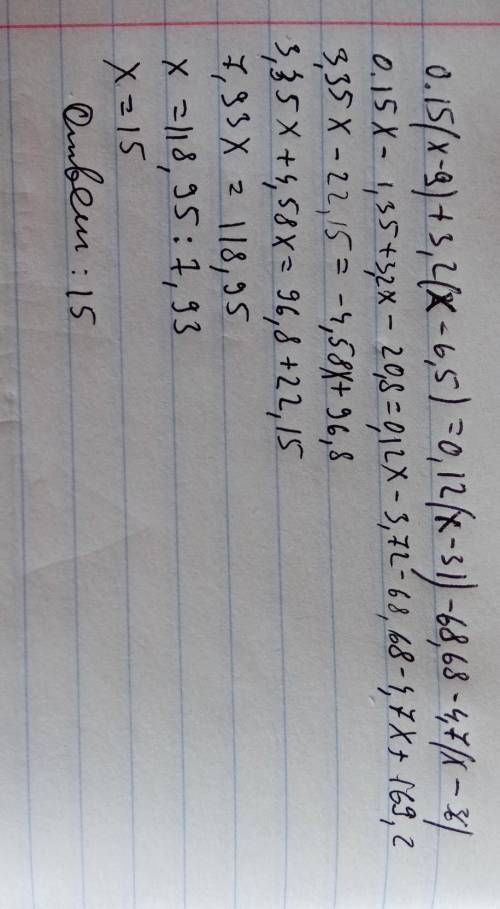 0.15(x-9)+3,2(x-6,5)=0,12(x-31)-68,68-4,7(x-36)
0.15x-1,35+3,2x-20,8=0,12x-3,72-68,68-4,7x+169,2
3,35x-22,15=-4,58x+96,8
3,35x+4,58x=96,8+22,15
7,93x=118,95
x=118,95:7,93
x=15
Ответ:15